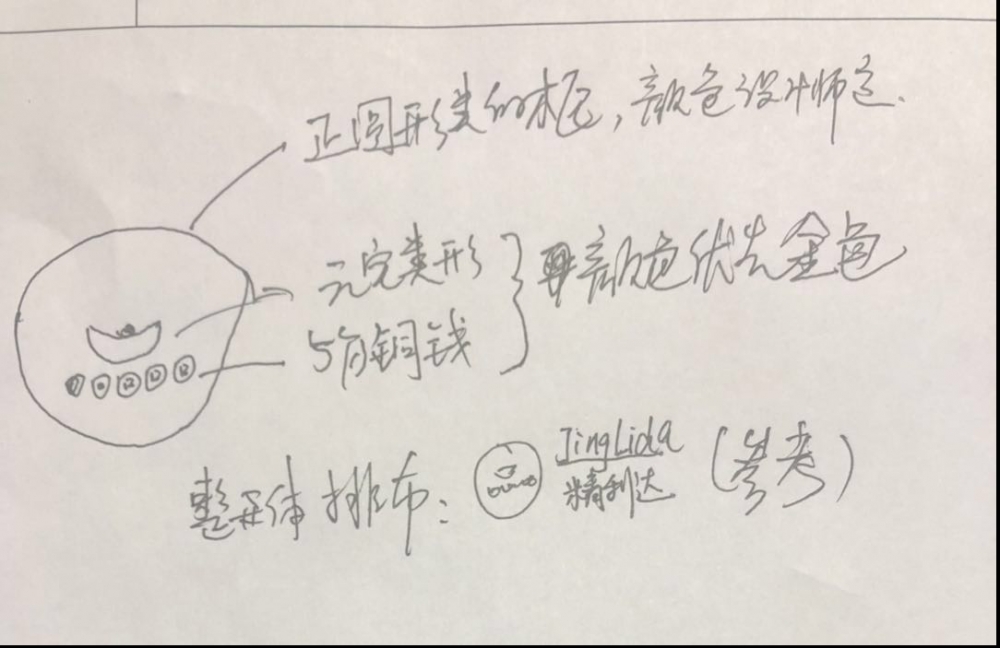 正圆形类的框，颜色设计师定.
元宝类形
5 铜钱
颜色优先金色
整体排布：
JingLida
精利达
(参考)